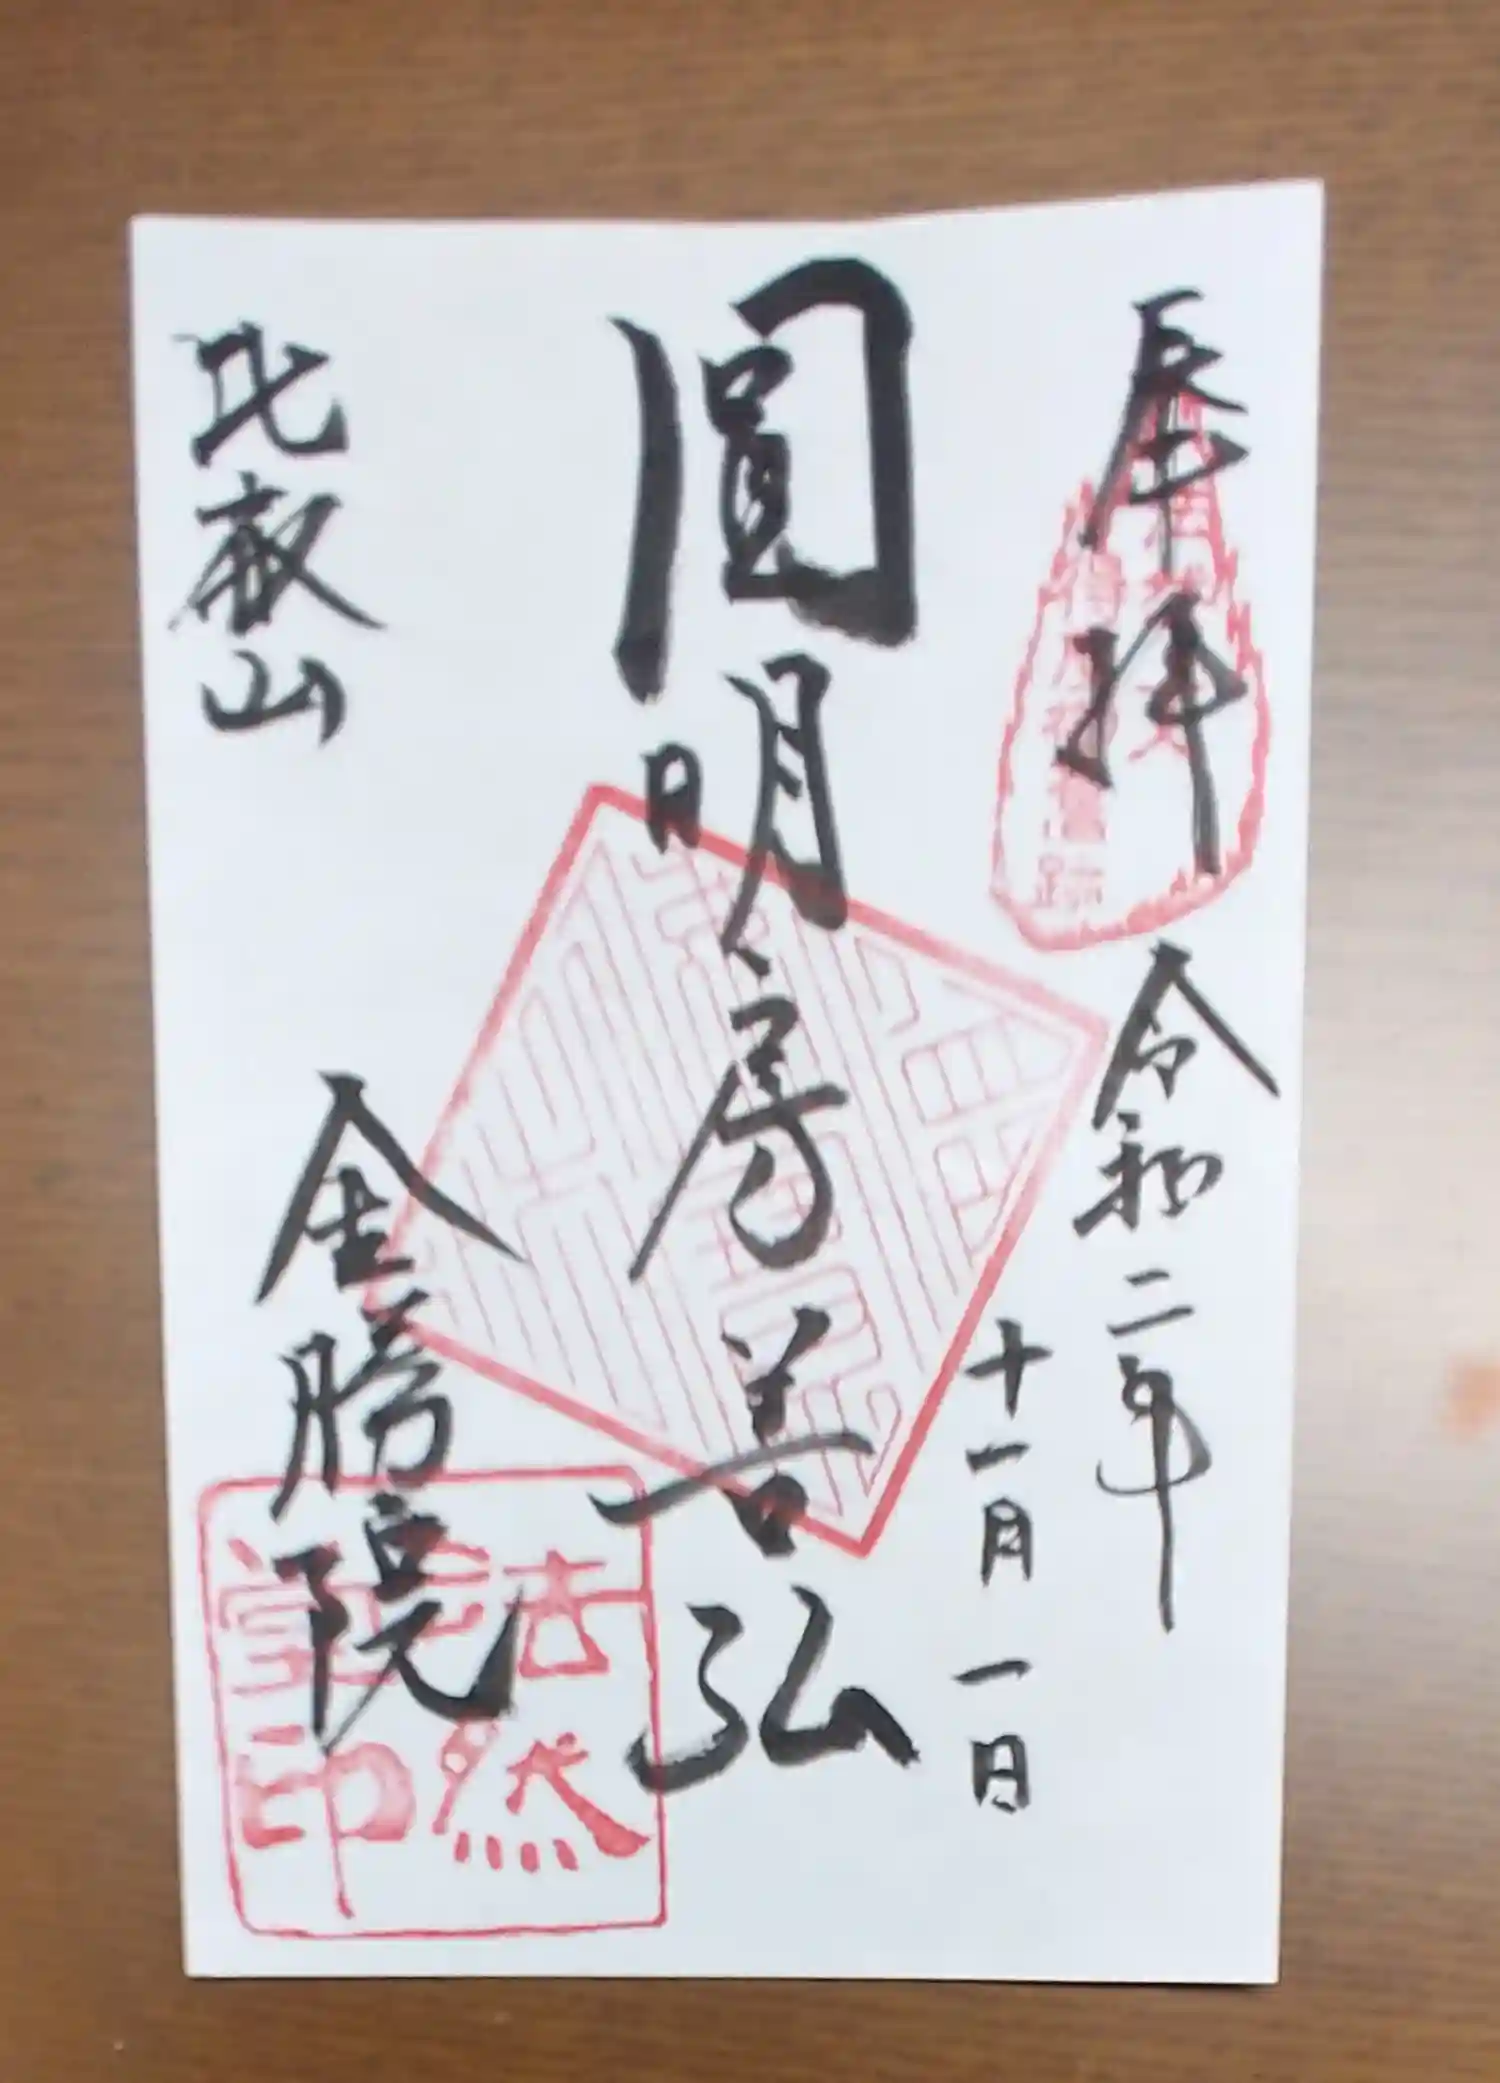 奉拝
令和二年
十一月一日
圓明房善弘
比叡山
金勝院
法然
堂印